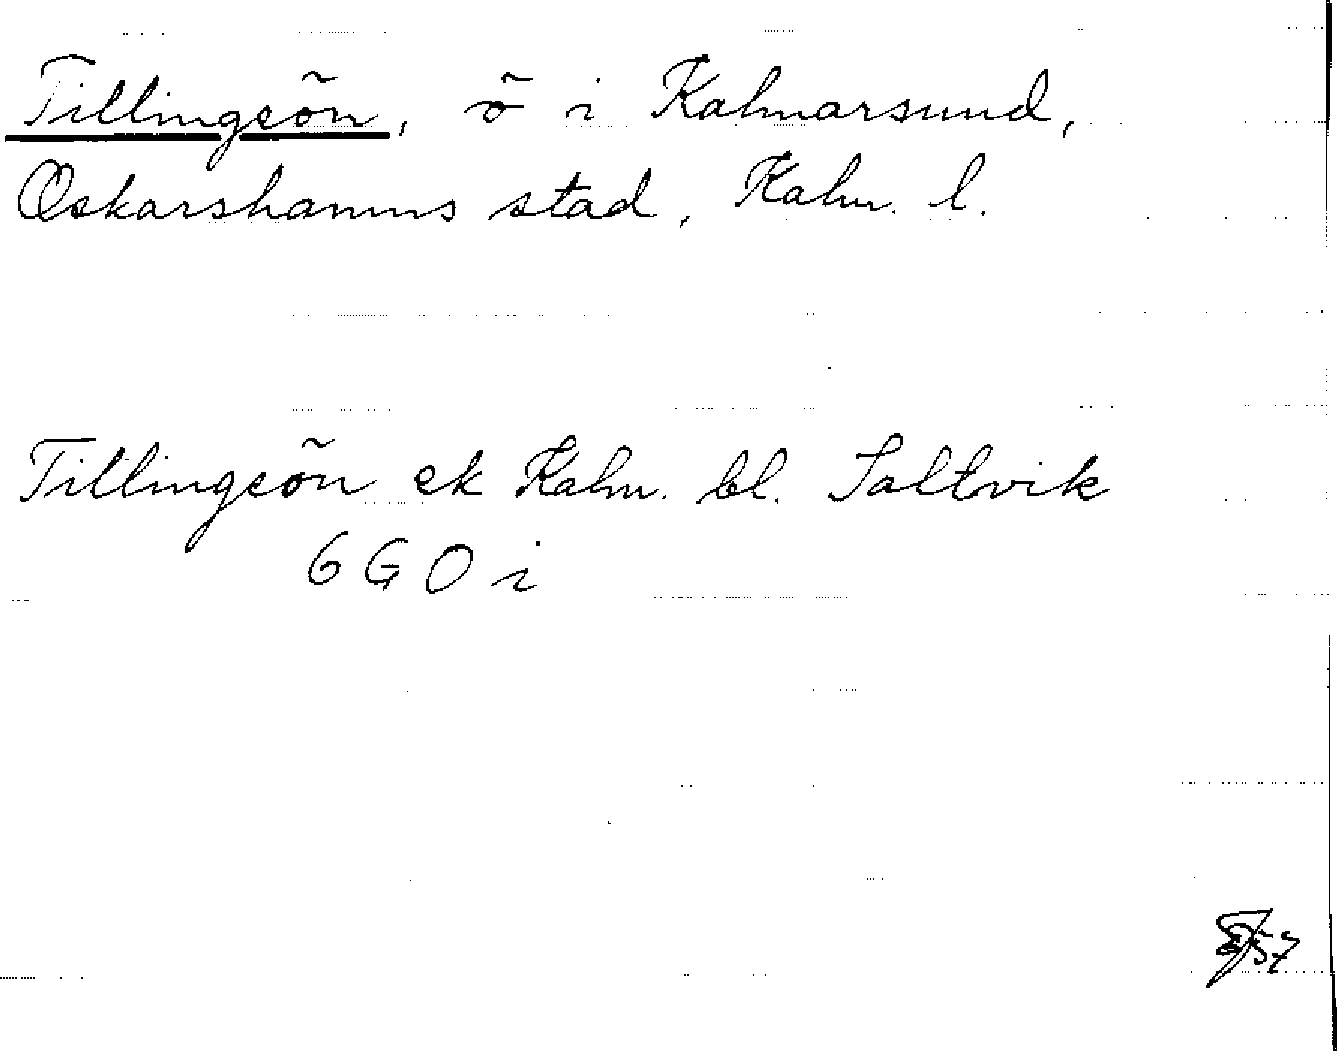 Tillingeön, ö i Kalmarsund,
Oskarshamns stad, Kalm. l.
Tillingeön ek Kalm. bl. Saltvik
6 G 0 i
57